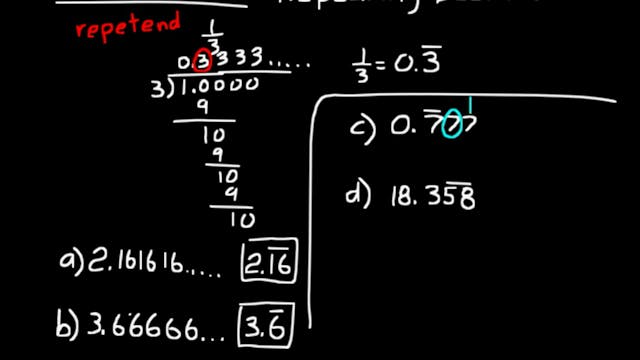 repetend
1/3
0.3333.....
3)1.0000
9
10
9
10
9
10
1/3 = 0.3̅
a) 2.161616..... 2.1̅6̅
b) 3.66666... 3.6̅
c) 0.7̅77
d) 18.35̅8̅